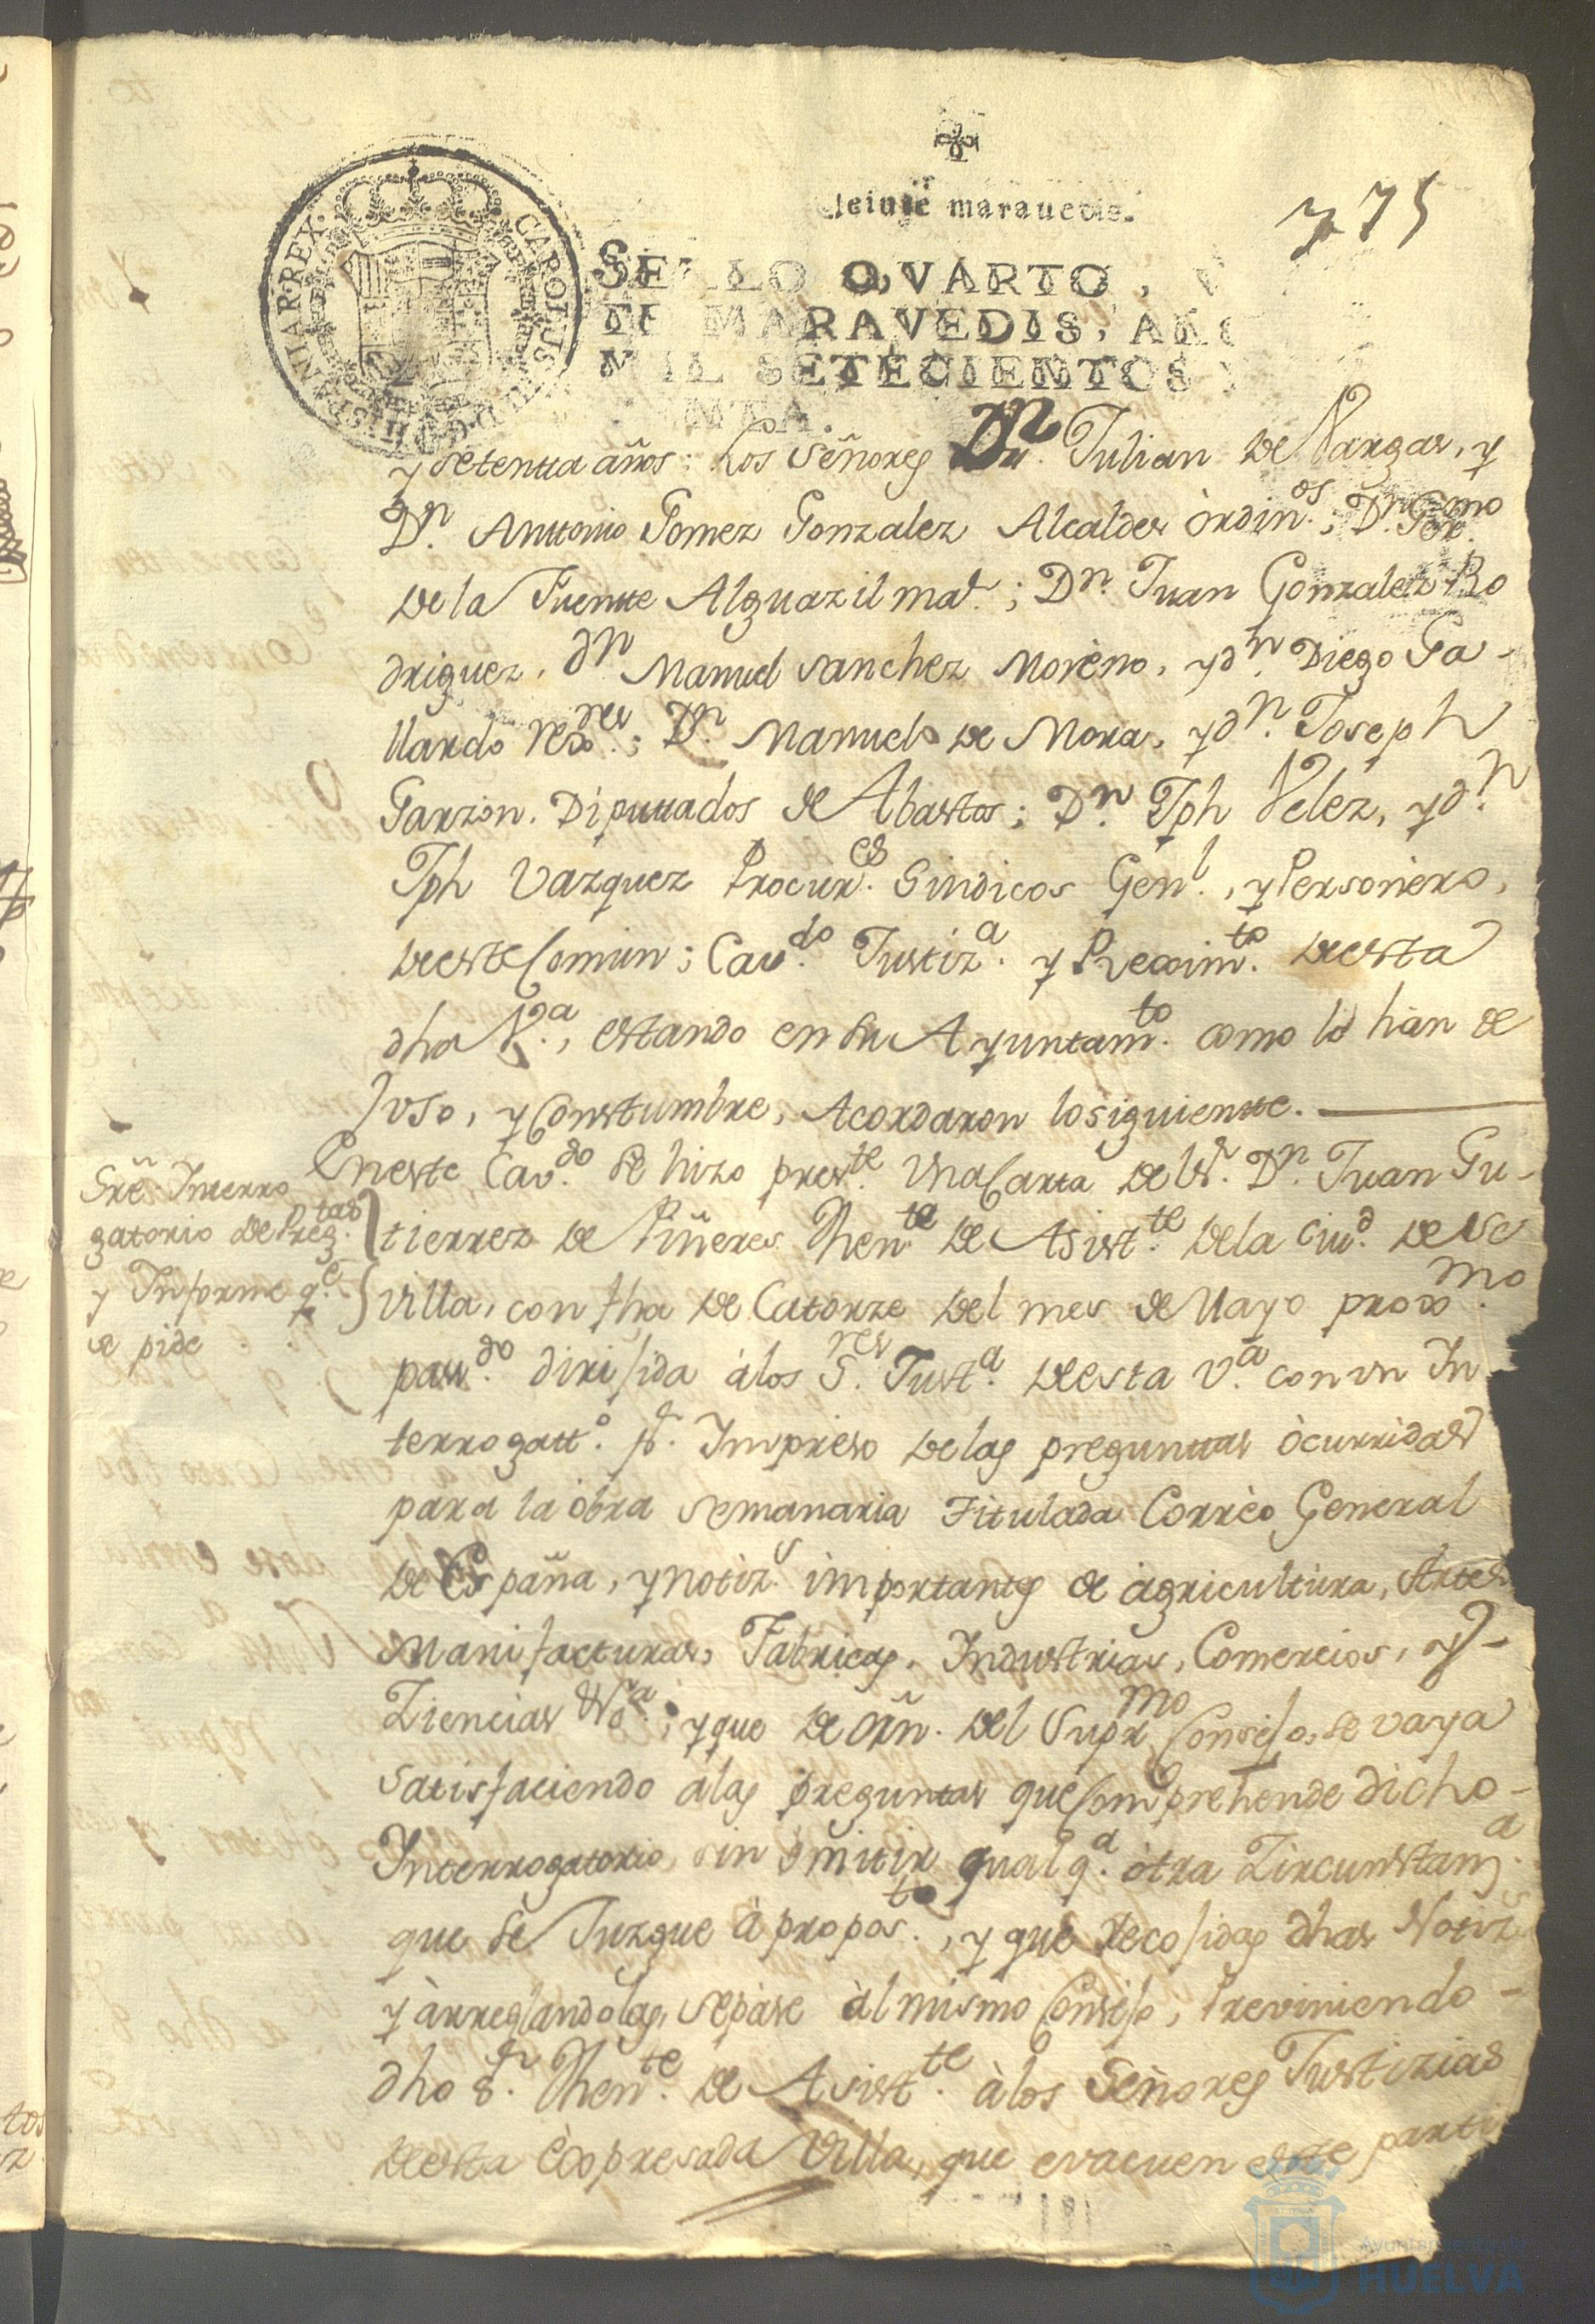 maravedis.
775
CAROLUS III D.G. HISPANIAR. REX.
SELLO QVARTO, V
TE MARAVEDIS, AÑO
MIL SETECIENTOS
ENTA.
y Setentta años: Los Señores Dn. Julian de Vargas, y
Dn. Anttonio Gomez Gonzalez Alcaldes òrdin.os; Dn. Germo.
de la Fuentte Alguazil maı.r; Dn. Juan Gonzalez Ro
driguez, dn. Manuel Sanchez Morèno, y dn. Diego Ga-
llardo rexo.res; Dn. Manuel de Mora, y dn. Joseph
Garzon, Diputtados de Abastos; Dn. Jph Velez, y dn.
Jph Vazquez Procur.es Sindicos Gen.l, y Personèro,
de este Comun; Cav.do Justiz.a y Reximto. de esta
dha V.a, estando en su Ayuntamto. como lo han de
Vso, y Constumbre, Acordaron lo siguientte.
Sre. Interro
gatorio de Preg.tas
y Informe q.e
se pide
En este Cav.do se hizo press.te Vna Carta del Sr. Dn. Juan Gu-
tierrez de Piñeres Thente. de Asistte. de la Ciud. de Se
villa, con fha de Catorze del mes de Mayo proxmo.
pasdo. dirijida à los Sres. Just.a de esta V.a con vn In
terrogatt.o Impreso de las preguntas òcurridas
para la òbra semanaria Titulada Corrèo General
de España, y notiz.s importantes de àgricultura, Artes
Manifacturas, Fabricas, Industrias, Comercios, y-
Ziencias &a.; y que de orñ. del Suprmo. Consejo, se vaya
Satisfaciendo à las preguntas que Comprehende dicho-
Interrogatorio, sin òmitir qualq.a òtra Zircunstanz.a
que se Juzgue à proposto., y que recojidas dhas Notiz.s
y àrreglandolas, se pàse àl mismo Consejo, Previniendo-
dho Sr. Thente. de Asistte. à los Señores Justizias
de esta Expresada Villa, que evacuen este parti
Ayuntamiento de
HUELVA